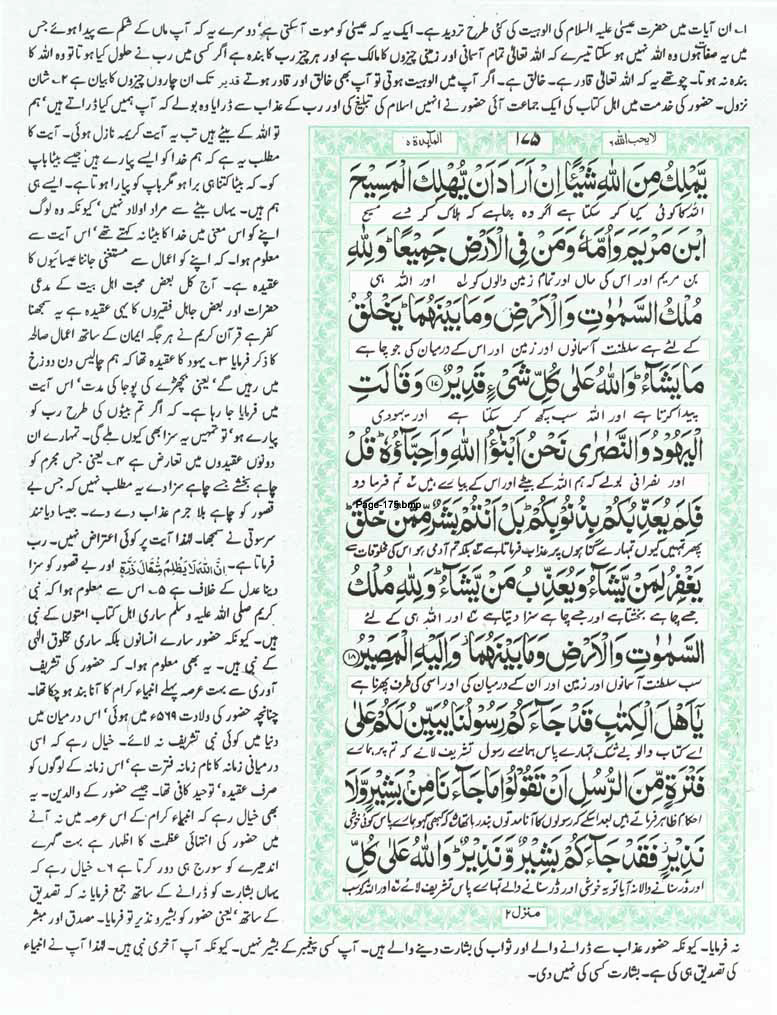 ۱۔ ان آیات میں حضرت عیسیٰ علیہ السلام کی الوہیت کی کئی طرح تردید ہے۔ ایک یہ کہ عیسیٰ کو موت آسکتی ہے، دوسرے یہ کہ آپ ماں کے شکم سے پیدا ہوئے جس
میں یہ صفات ہوں وہ اللہ نہیں ہو سکتا تیسرے کہ اللہ تعالیٰ تمام آسمانی اور زمینی چیزوں کا مالک ہے اور ہر چیز رب کا بندہ ہے اگر کسی میں رب نے حلول کیا ہوتا تو وہ اللہ کا
بندہ نہ ہوتا۔ چوتھے یہ کہ اللہ تعالیٰ قادر ہے۔ خالق ہے۔ اگر آپ میں الوہیت ہوتی تو آپ بھی خالق اور قادر ہوتے قدیر تک ان چاروں چیزوں کا بیان ہے ۲۔ شان
نزول۔ حضور کی خدمت میں اہل کتاب کی ایک جماعت آئی حضور نے انہیں اسلام کی تبلیغ کی اور رب کے عذاب سے ڈرایا وہ بولے کہ آپ ہمیں کیا ڈراتے ہیں، ہم
تو اللہ کے بیٹے ہیں تب یہ آیت کریمہ نازل ہوئی۔ آیت کا
مطلب یہ ہے کہ ہم خدا کو ایسے پیارے ہیں جیسے بیٹا باپ
کو۔ کہ بیٹا کتنا ہی برا ہو مگر باپ کو پیارا ہوتا ہے۔ ایسے ہی
ہم ہیں۔ یہاں بیٹے سے مراد اولاد نہیں، کیونکہ وہ لوگ
اپنے کو اس معنی میں خدا کا بیٹا نہ کہتے تھے، اس آیت سے
معلوم ہوا۔ کہ اپنے کو اعمال سے مستغنی جاننا عیسائیوں کا
عقیدہ ہے۔ آج کل بعض محبت اہل بیت کے مدعی
حضرات اور بعض جاہل فقیروں کا یہی عقیدہ ہے یہ سمجھنا
کفر ہے قرآن کریم نے ہر جگہ ایمان کے ساتھ اعمال صالحہ
کا ذکر فرمایا ۳۔ یہود کا عقیدہ تھا کہ ہم چالیس دن دوزخ
میں رہیں گے، یعنی بچھڑے کی پوجا کی مدت، اس آیت
میں فرمایا جا رہا ہے۔ کہ اگر تم بیٹوں کی طرح رب کو
پیارے ہو، تو تمہیں یہ سزا بھی کیوں ملے گی۔ تمہارے ان
دونوں عقیدوں میں تعارض ہے ۴۔ یعنی جس مجرم کو
چاہے بخشے جسے چاہے سزا دے یہ مطلب نہیں کہ جس بے
قصور کو چاہے بلا جرم عذاب دے دے۔ جیسا دیانند
سرسوتی نے سمجھا۔ لہٰذا آیت پر کوئی اعتراض نہیں۔ رب
فرماتا ہے۔ اِنَّ اللّٰهَ لَا يَظْلِمُ مِثْقَالَ ذَرَّةٍ اور بے قصور کو سزا
دینا عدل کے خلاف ہے ۵۔ اس سے معلوم ہوا کہ نبی
کریم صلی اللہ علیہ وسلم ساری اہل کتاب امتوں کے نبی
ہیں۔ کیونکہ حضور سارے انسانوں بلکہ ساری مخلوق الٰہی
کے نبی ہیں۔ یہ بھی معلوم ہوا۔ کہ حضور کی تشریف
آوری سے بہت عرصہ پہلے انبیاء کرام کا آنا بند ہو چکا تھا۔
چنانچہ حضور کی ولادت ۵۶۹ء میں ہوئی، اس درمیان میں
دنیا میں کوئی نبی تشریف نہ لائے۔ خیال رہے کہ اسی
درمیانی زمانہ کا نام زمانہ فترت ہے، اس زمانہ کے لوگوں کو
صرف عقیدہ، توحید کافی تھا۔ جیسے حضور کے والدین۔ یہ
بھی خیال رہے کہ انبیاء کرام کے اس عرصہ میں نہ آنے
میں حضور کی انتہائی عظمت کا اظہار ہے بہت گہرے
اندھیرے کو سورج ہی دور کرتا ہے ۶۔ خیال رہے کہ
یہاں بشارت کو ڈرانے کے ساتھ جمع فرمایا نہ کہ تصدیق
کے ساتھ، یعنی حضور کو بشیر و نذیر تو فرمایا۔ مصدق اور مبشر
لا یحب اللہ ۶
۱۷۵
المآیدۃ ۵
يَّمْلِكُ مِنَ اللّٰهِ شَيْـًٔا اِنْ اَرَادَ اَنْ يُّهْلِكَ الْمَسِيْحَ
اللہ کا کوئی کیا کر سکتا ہے اگر وہ چاہے کہ ہلاک کر دے مسیح
ابْنَ مَرْيَمَ وَاُمَّهٗ وَمَنْ فِی الْاَرْضِ جَمِيْعًا ؕ وَلِلّٰهِ
بن مریم اور اس کی ماں اور تمام زمین والوں کو لہ اور اللہ ہی
مُلْكُ السَّمٰوٰتِ وَالْاَرْضِ وَمَا بَيْنَهُمَا ؕ يَخْلُقُ
کے لئے ہے سلطنت آسمانوں اور زمین اور اس کے درمیان کی جو چاہے
مَا يَشَآءُ ؕ وَاللّٰهُ عَلٰى كُلِّ شَیْءٍ قَدِيْرٌ ۝۱۷ وَقَالَتِ
پیدا کرتا ہے اور اللہ سب کچھ کر سکتا ہے اور یہودی
الْيَهُوْدُ وَالنَّصٰرٰى نَحْنُ اَبْنٰٓؤُا اللّٰهِ وَاَحِبَّآؤُهٗ ؕ قُلْ
اور نصرانی بولے کہ ہم اللہ کے بیٹے اور اس کے پیارے ہیں ۲ تم فرما دو
Page-175.bmp
فَلِمَ يُعَذِّبُكُمْ بِذُنُوْبِكُمْ ؕ بَلْ اَنْتُمْ بَشَرٌ مِّمَّنْ خَلَقَ ؕ
پھر تمہیں کیوں تمہارے گناہوں پر عذاب فرماتا ہے ۳ بلکہ تم آدمی ہو اس کی مخلوقات سے
يَغْفِرُ لِمَنْ يَّشَآءُ وَيُعَذِّبُ مَنْ يَّشَآءُ ؕ وَلِلّٰهِ مُلْكُ
جسے چاہے بخشتا ہے اور جسے چاہے سزا دیتا ہے ۴ اور اللہ ہی کے لئے
السَّمٰوٰتِ وَالْاَرْضِ وَمَا بَيْنَهُمَا ؗ وَاِلَيْهِ الْمَصِيْرُ ۝۱۸
سب سلطنت آسمانوں اور زمین اور ان کے درمیان کی اور اسی کی طرف پھرنا ہے
يٰٓاَهْلَ الْكِتٰبِ قَدْ جَآءَكُمْ رَسُوْلُنَا يُبَيِّنُ لَكُمْ عَلٰى
اے کتاب والو بے شک تمہارے پاس ہمارے رسول تشریف لائے کہ تم پر ہمارے
فَتْرَةٍ مِّنَ الرُّسُلِ اَنْ تَقُوْلُوْا مَا جَآءَنَا مِنْۢ بَشِيْرٍ وَّلَا
احکام ظاہر فرماتے ہیں بعد اسکے کہ رسولوں کا آنا مدتوں بند رہا تھا ۵ کہ کبھی کہو ہمارے پاس کوئی خوشی
نَذِيْرٍ ؗ فَقَدْ جَآءَكُمْ بَشِيْرٌ وَّنَذِيْرٌ ؕ وَاللّٰهُ عَلٰى كُلِّ
اور ڈر سنانے والا نہ آیا تو یہ خوشی اور ڈر سنانے والے تمہارے پاس تشریف لائے ۶ اور اللہ کو سب
منزل ۲
نہ فرمایا۔ کیونکہ حضور عذاب سے ڈرانے والے اور ثواب کی بشارت دینے والے ہیں۔ آپ کسی پیغمبر کے بشیر نہیں۔ کیونکہ آپ آخری نبی ہیں۔ لہٰذا آپ نے انبیاء
کی تصدیق ہی کی ہے۔ بشارت کسی کی نہیں دی۔